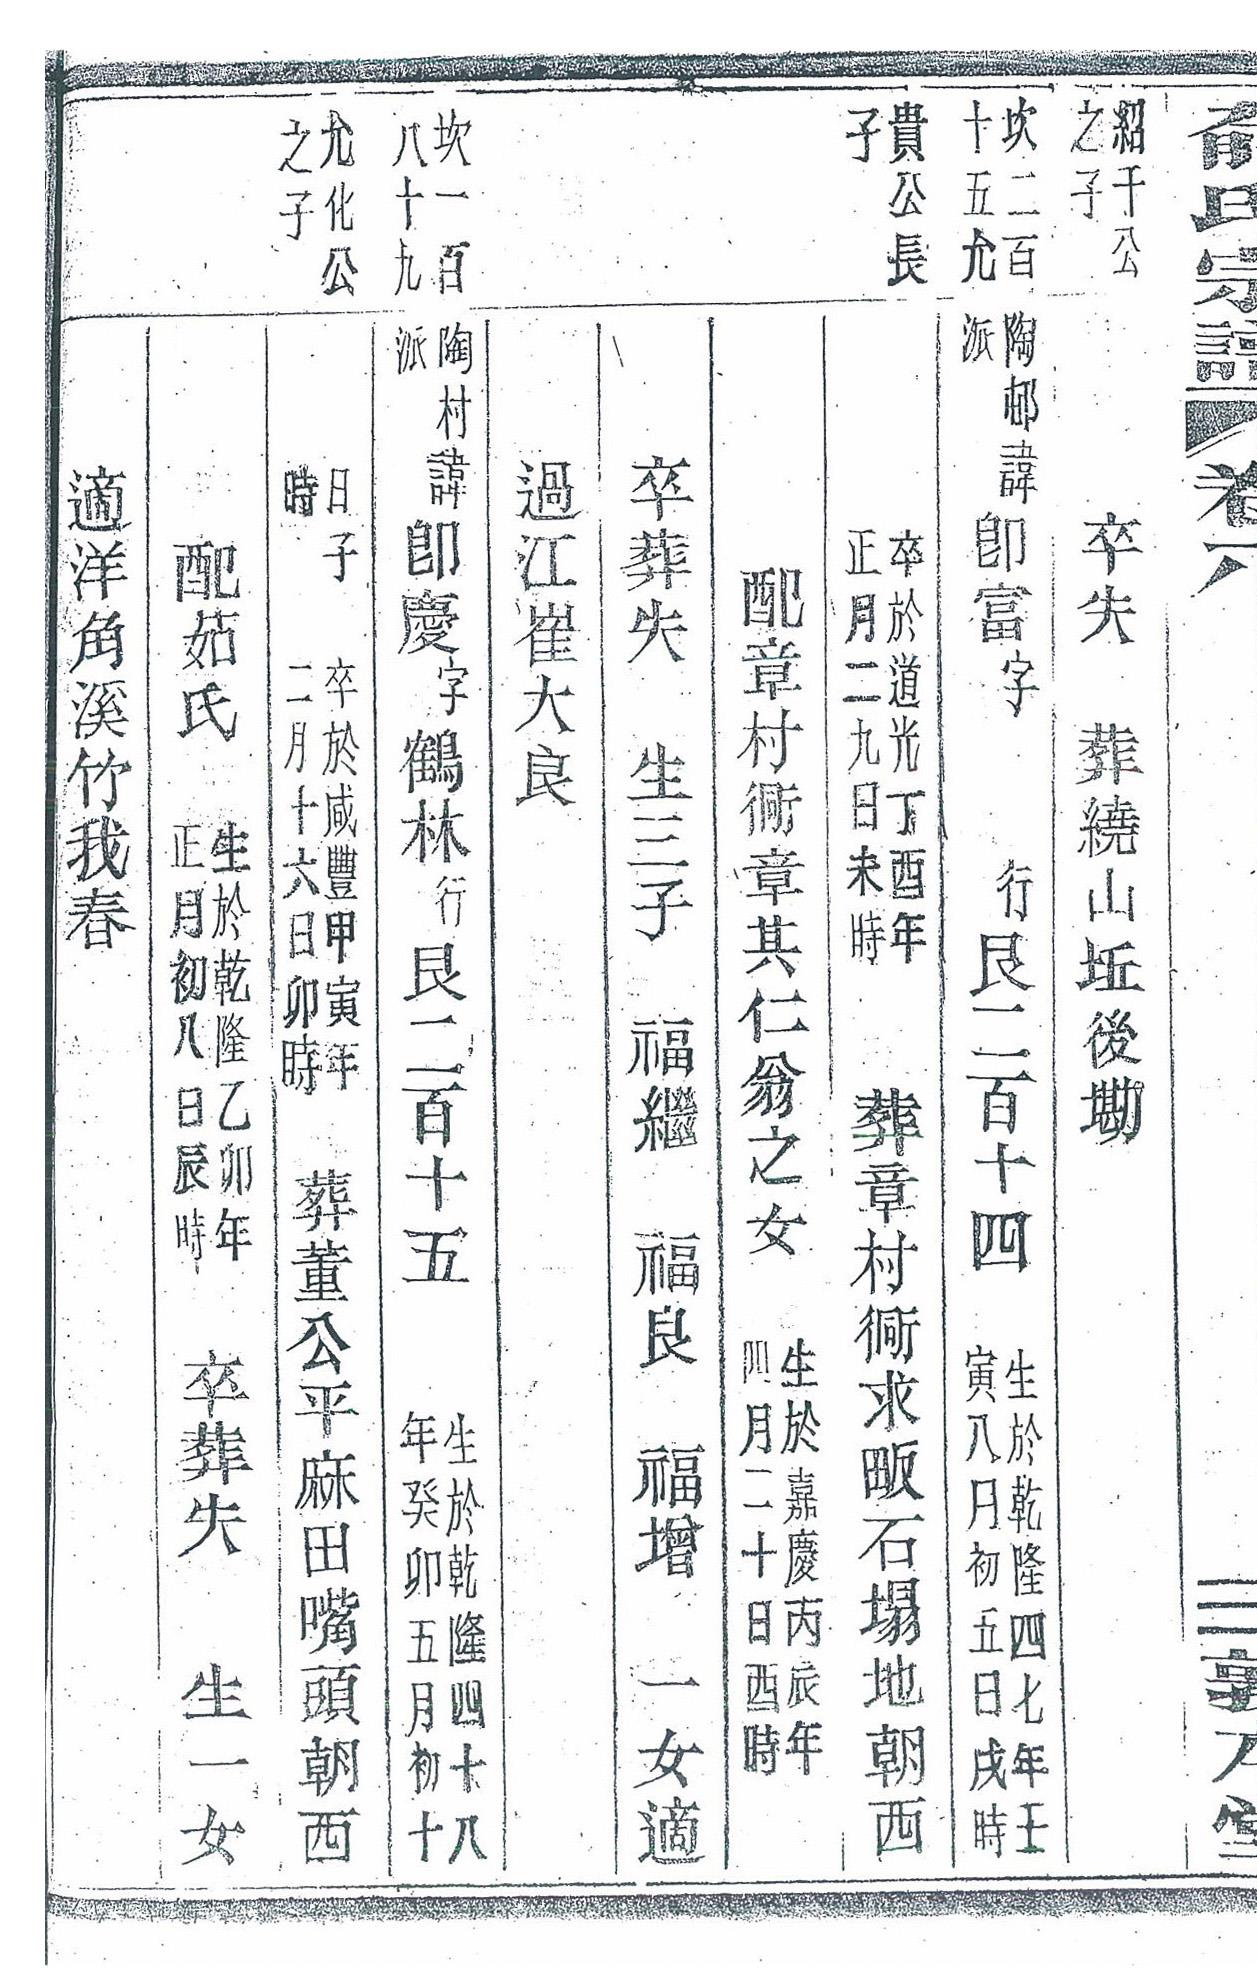 氏宗譜
卷八
三
堂
紹千公
之子
卒失　葬繞山坵後墈
坎二百
十五允
陶邨諱
派
卽富字　行艮一二百十四
生於乾隆四七年壬
寅八月初五日戌時
貴公長
子
卒於道光丁酉年
正月二九日未時
葬章村衕求畈石塌地朝西
配章村衕章其仁翁之女
生於嘉慶丙辰年
四月二十日酉時
卒葬失　生三子　福繼　福良　福增　一女適
過江崔大良
坎一百
八十九
陶村諱
派
卽慶字鶴林行艮一二百十五
生於乾隆四十八
年癸卯五月初十
允化公
之子
日子
時
卒於咸豐甲寅年
二月十六日卯時
葬董公平麻田嘴頭朝西
配茹氏
生於乾隆乙卯年
正月初八日辰時
卒葬失　生一女
適洋角溪竹我春